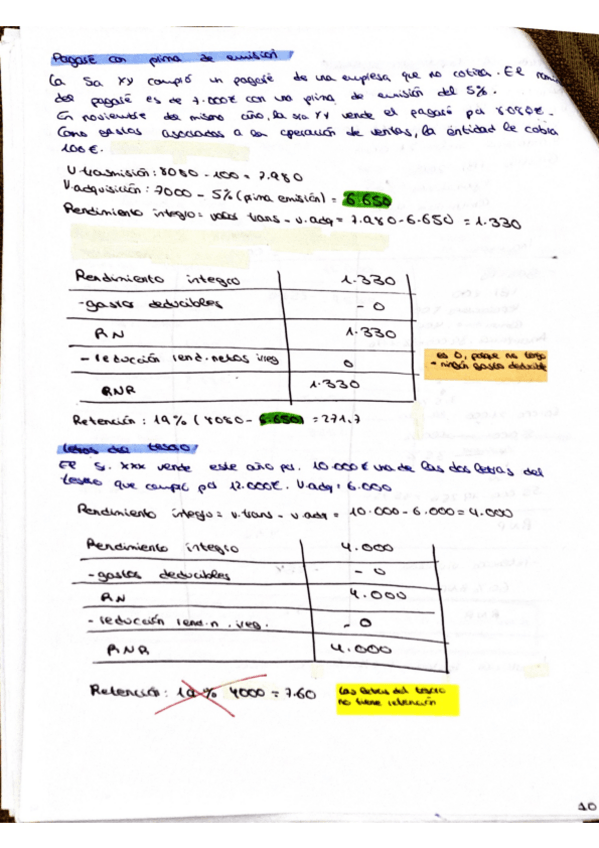 Pagaré con prima de emisión
La Sa XY compró un pagaré de una empresa que no cotiza. El nomi
del pagaré es de 7.000€ con una prima de emisión del 5%.
En noviembre del mismo año, la sra XY vende el pagaré por 8080€.
Como gastos asociados a la operación de ventas, la entidad le cobra
100€.
V.trasmisión: 8080 - 100 = 7.980
V.adquisición: 7000 - 5% (pima emisión) = 6.650
Rendimiento integro = valor trans - v.adq = 7.980 - 6.650 = 1.330
Rendimiento integro 1.330
- gastos deducibles - 0
RN 1.330
- reducción rend. netos irreg 0
RNR 1.330
es 0, porque no tengo
ningún gasto deducible
Retención: 19% (8080 - 6.650) = 271,7
Letras del tesoro
El S. XXX vende este año por 10.000€ una de las dos letras del
tesoro que compró por 12.000€. V.adq = 6.000
Rendimiento integro = v.trans - v.adq = 10.000 - 6.000 = 4.000
Rendimiento integro 4.000
- gastos deducibles - 0
RN 4.000
- reducción rend.n. irreg. - 0
RNR 4.000
Retención: 19% 4000 = 7.60
Las letras del tesoro
no tiene retención
10